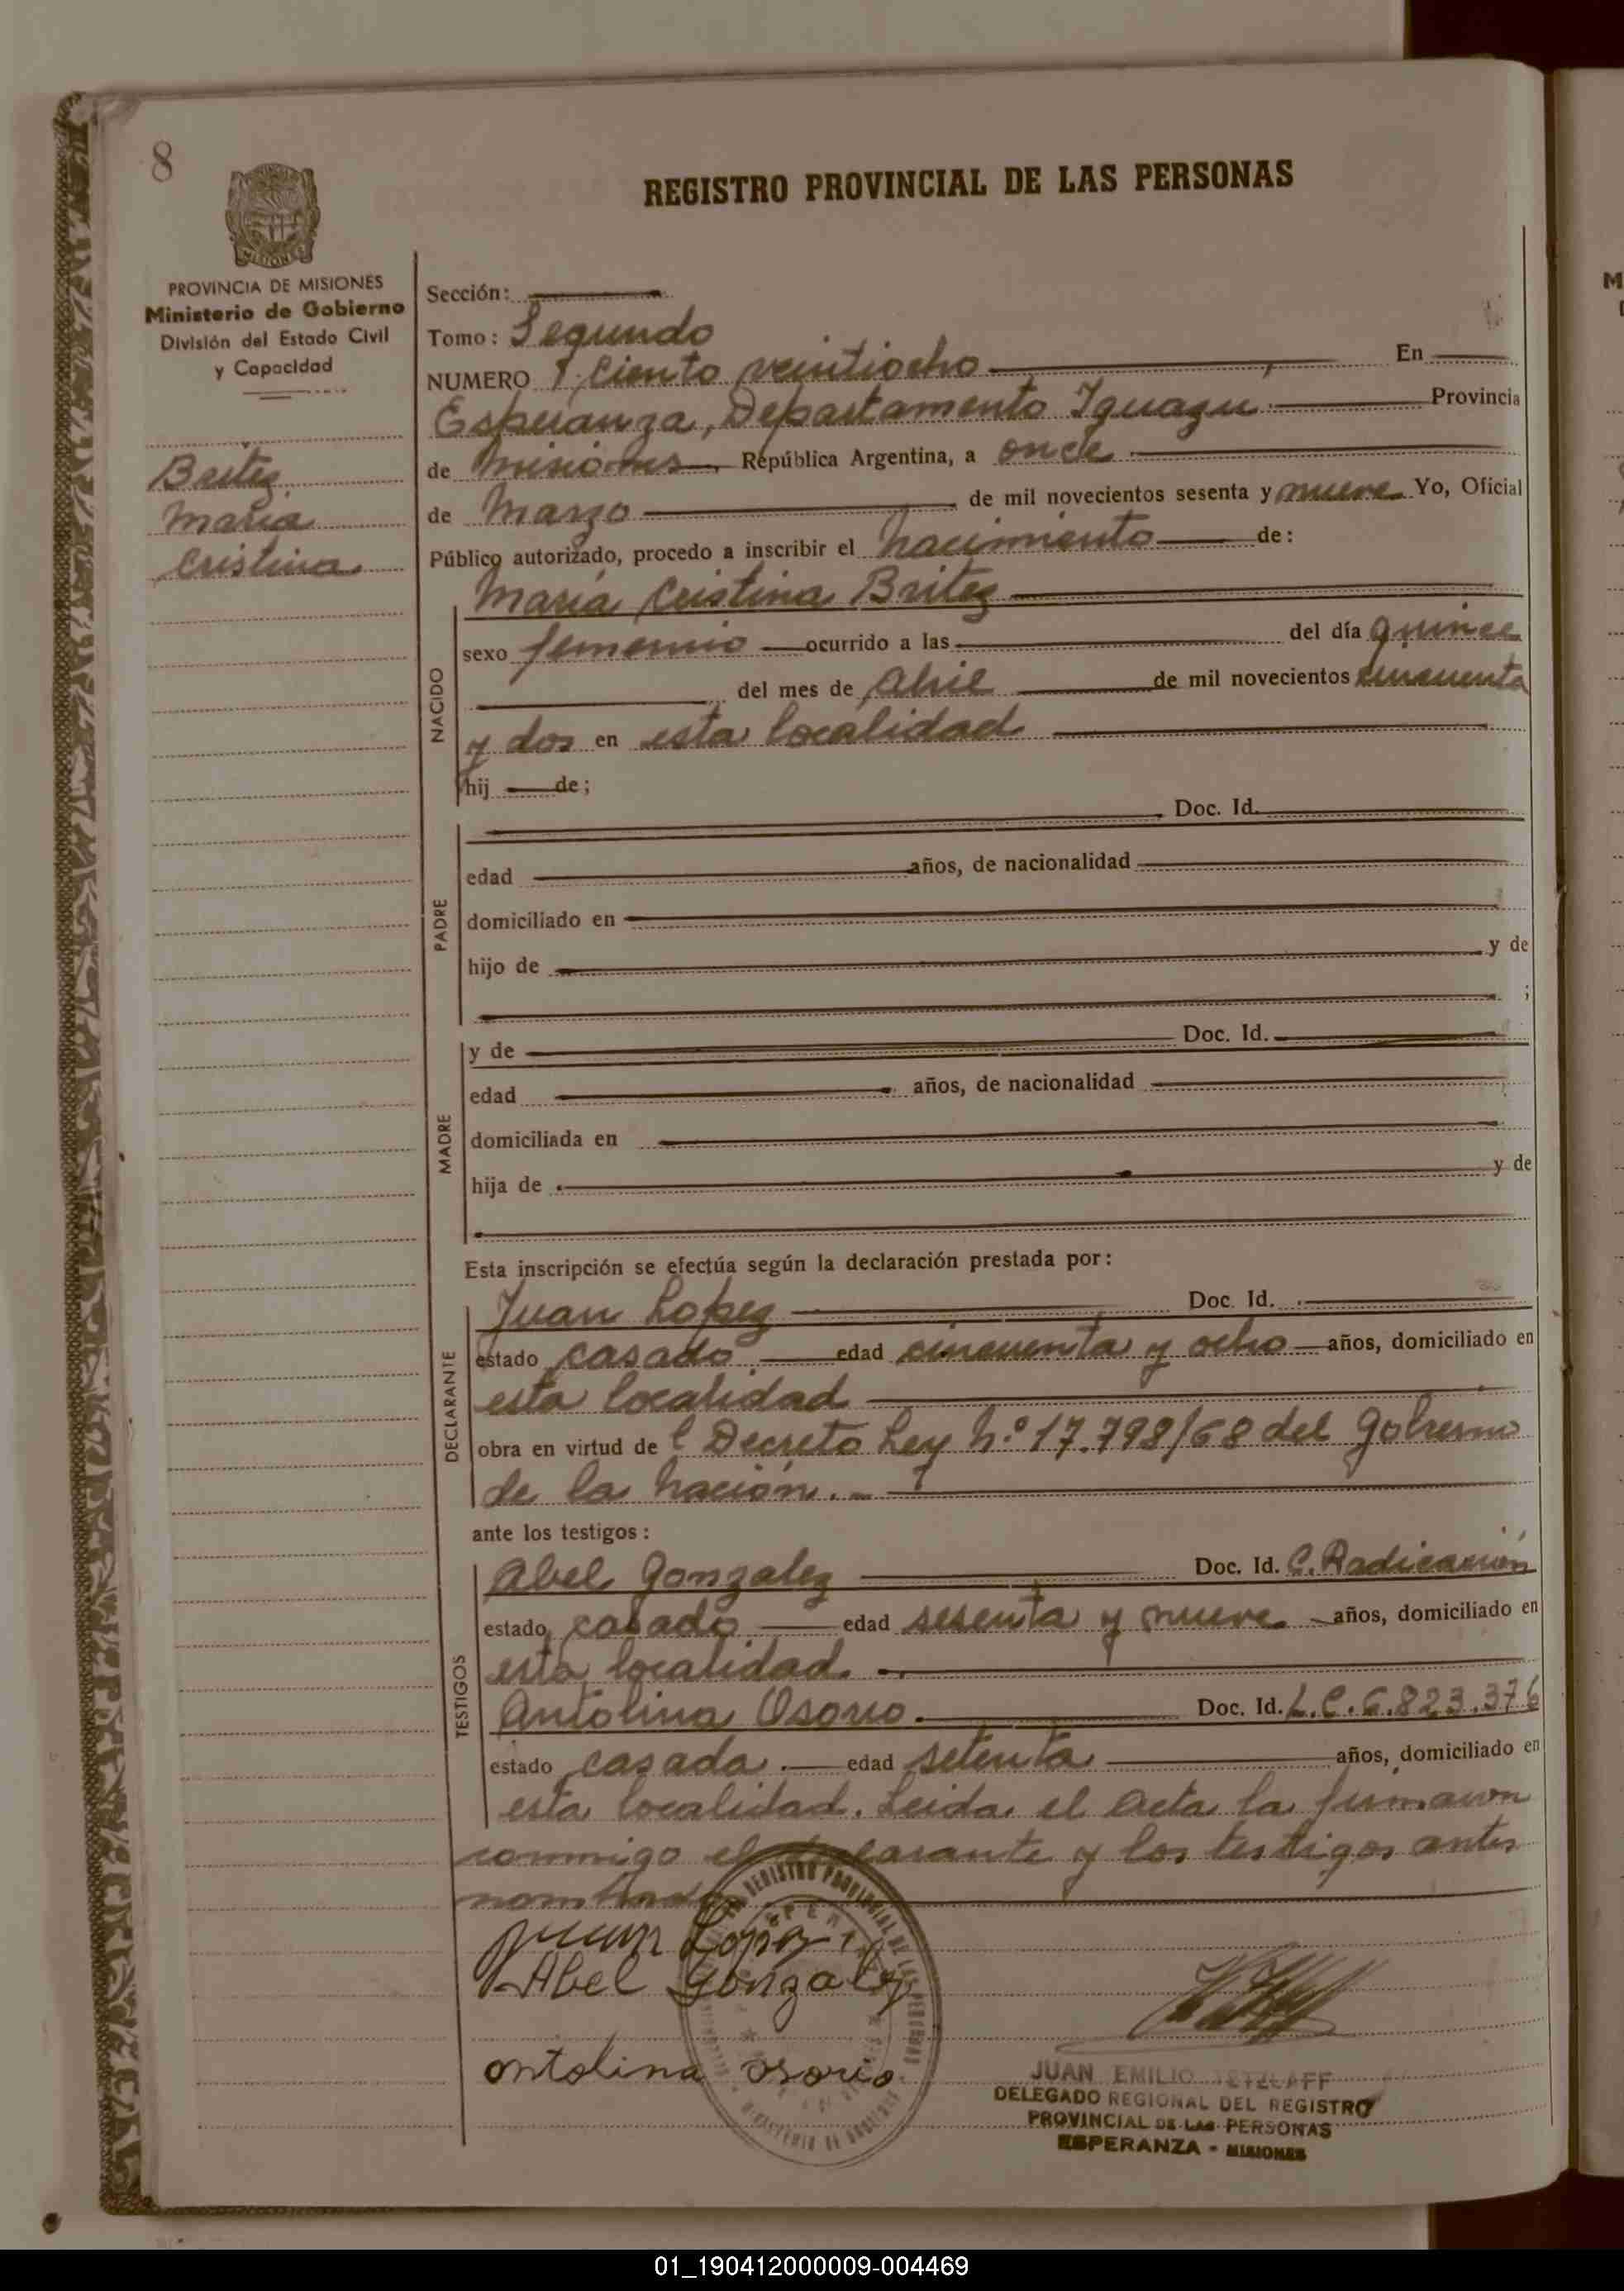 8
REGISTRO PROVINCIAL DE LAS PERSONAS
MISIONES
PROVINCIA DE MISIONES
Ministerio de Gobierno
División del Estado Civil
y Capacidad
Britez
María
Cristina
Sección:
Tomo: Segundo
NUMERO Ciento veintiocho En
Esperanza, Departamento Iguazu Provincia
de Misiones República Argentina, a once
de Marzo de mil novecientos sesenta y nueve Yo, Oficial
Público autorizado, procedo a inscribir el nacimiento de:
María Cristina Britez
NACIDO
sexo femenino ocurrido a las del día quince
del mes de abril de mil novecientos cincuenta
y dos en esta localidad
hij de;
PADRE
Doc. Id.
edad años, de nacionalidad
domiciliado en
hijo de y de
;
MADRE
y de Doc. Id.
edad años, de nacionalidad
domiciliada en
hija de y de
Esta inscripción se efectúa según la declaración prestada por:
DECLARANTE
Juan Lopez Doc. Id.
estado casado edad cincuenta y ocho años, domiciliado en
esta localidad
obra en virtud de l Decreto Ley N.º 17.798/68 del Gobierno
de la Nación.-
ante los testigos:
TESTIGOS
Abel Gonzalez Doc. Id. C. Radicación
estado casado edad sesenta y nueve años, domiciliado en
esta localidad.
Antolina Osorio. Doc. Id. L.C. 6.823.376
estado casada.- edad setenta años, domiciliado en
esta localidad. Leida el acta la firmaron
conmigo el declarante y los testigos antes
nombrados
Juan Lopez
Abel Gonzalez
Antolina osorio
REGISTRO PROVINCIAL DE LAS PERSONAS
JUAN EMILIO TETZLAFF
DELEGADO REGIONAL DEL REGISTRO
PROVINCIAL DE LAS PERSONAS
ESPERANZA - MISIONES
01_190412000009-004469